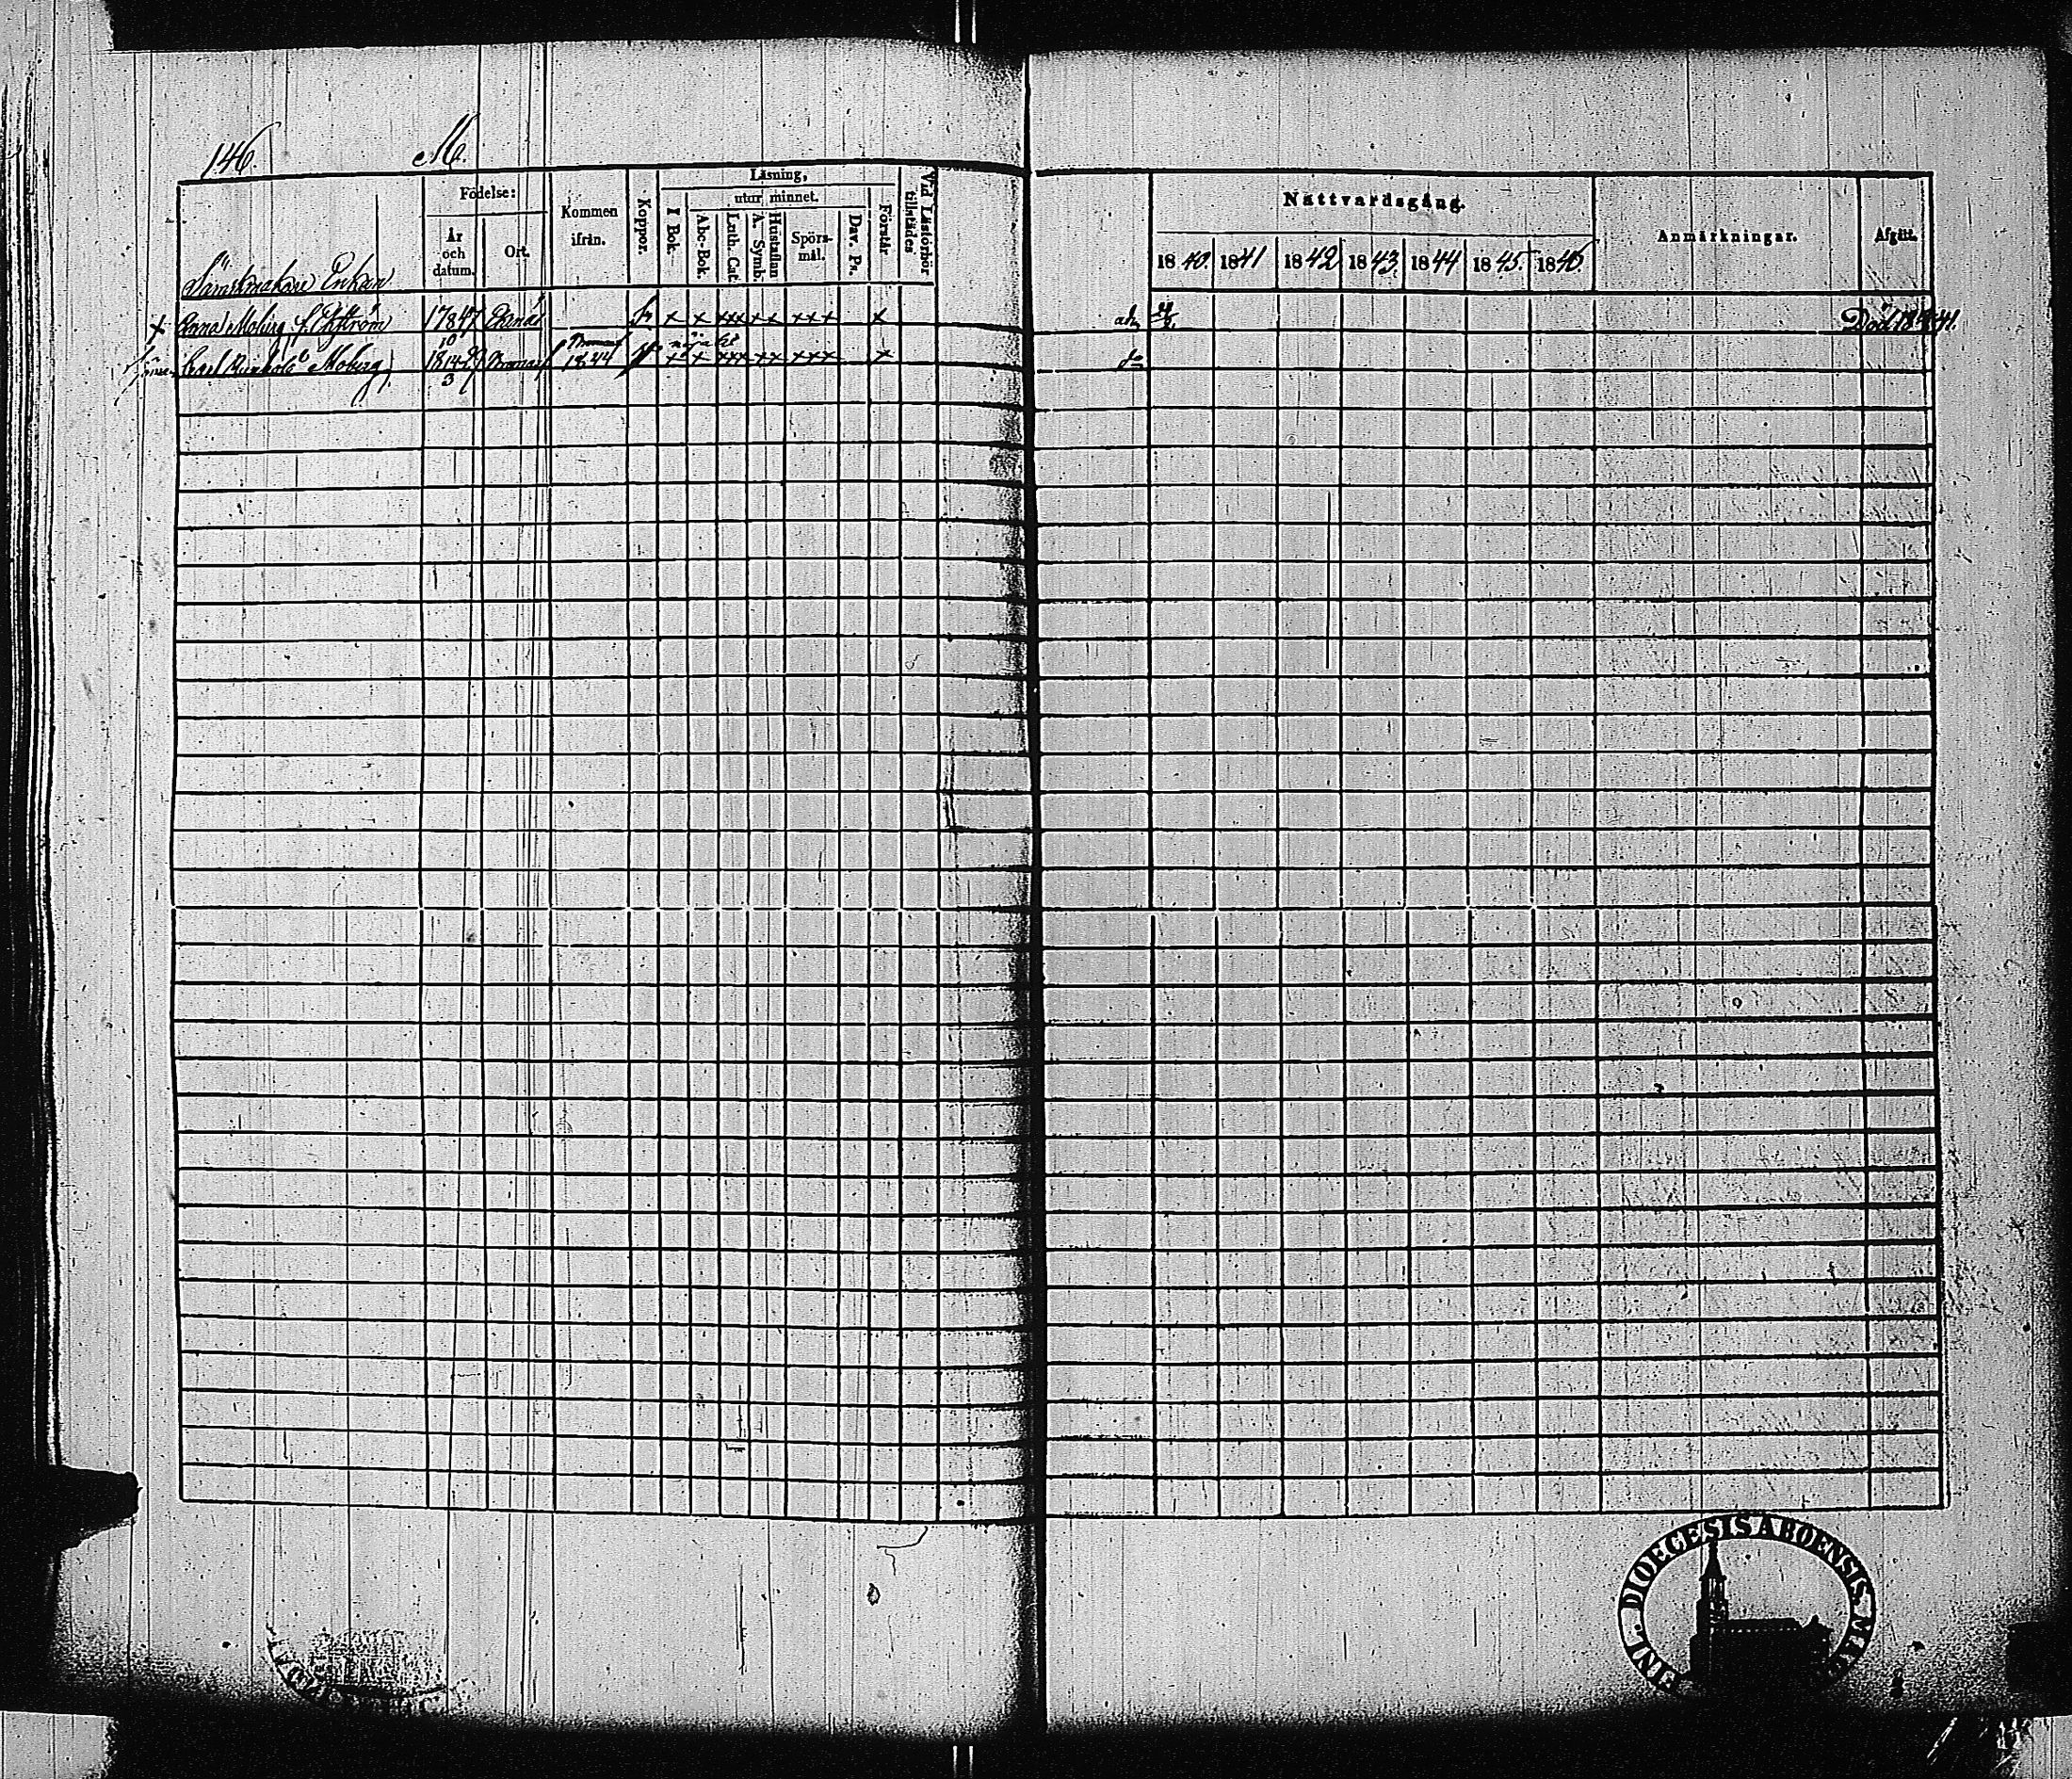 146.
M.
Födelse:
År och datum.
Ort.
Kommen ifrån.
Koppor.
Läsning,
utur minnet.
I Bok.
Abc-Bok.
Luth. Cat.
A. Symb.
Hustaflan
Spörsmål.
Dav. Ps.
Förstår
Vid Läsförhör tillstädes
Nattvardsgång.
1840. 1841 1842 1843. 1844 1845. 1846.
Anmärkningar.
Afgått.
Sämskmakare Enkan
Anna Moberg f. Ekström 1784 Ekenäs x x xxx xx xxx x adm Död 1841.
Carl Reinhold Moberg 1814 Bromarf Bromarf 1844 nöjaktigt x x xxx xx xxx x do
FINL. DIOECESIS ABOENSIS